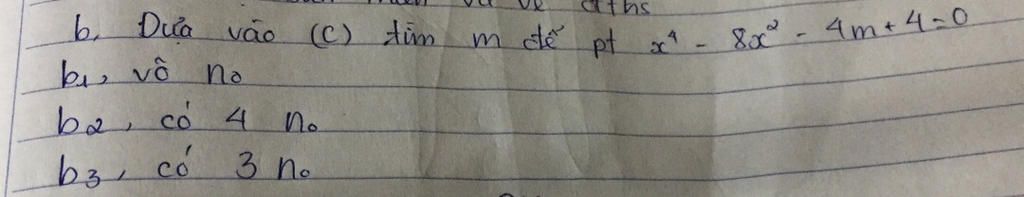 và vẽ đths
b, Dựa vào (C) tìm m để pt x⁴ - 8x² - 4m + 4 = 0
b₁, vô n₀
b₂, có 4 n₀
b₃, có 3 n₀